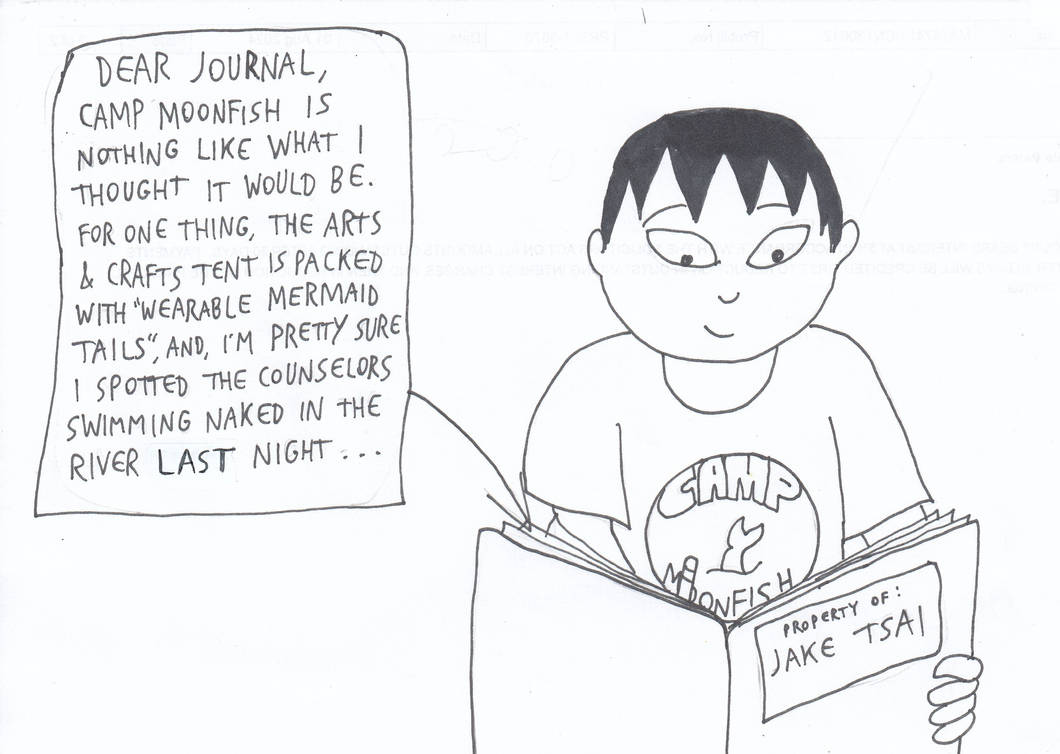 DEAR JOURNAL,
CAMP MOONFISH IS
NOTHING LIKE WHAT I
THOUGHT IT WOULD BE.
FOR ONE THING, THE ARTS
& CRAFTS TENT IS PACKED
WITH "WEARABLE MERMAID
TAILS", AND, I'M PRETTY SURE
I SPOTTED THE COUNSELORS
SWIMMING NAKED IN THE
RIVER LAST NIGHT...
CAMP
MOONFISH
PROPERTY OF:
JAKE TSAI